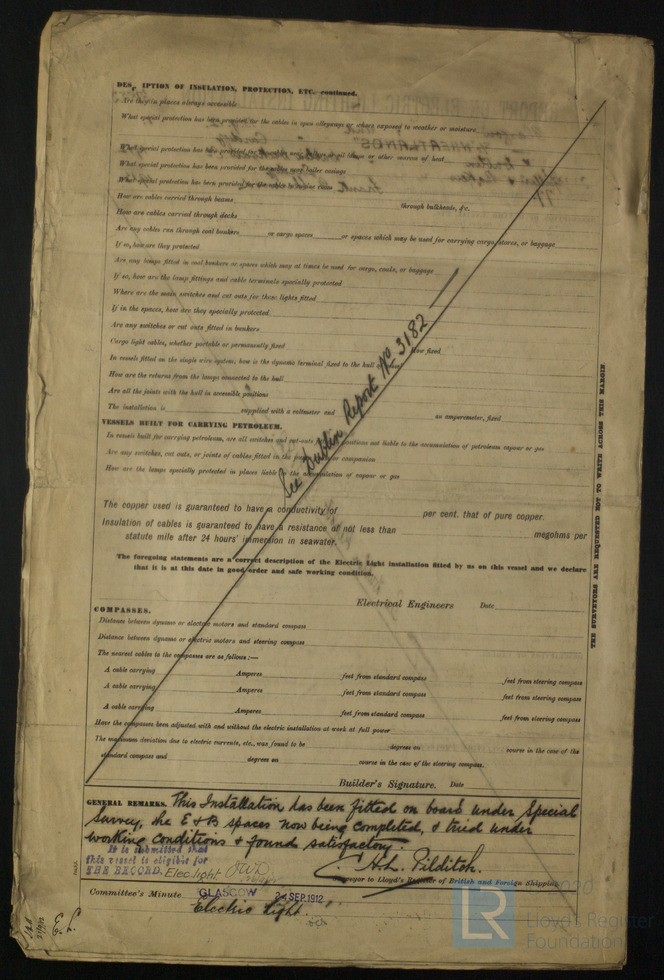 DESCRIPTION OF INSULATION, PROTECTION, ETC.—continued.
Are they in places always accessible
What special protection has been provided for the cables in open alleyways or where exposed to weather or moisture
What special protection has been provided for the cables near galleys or oil lamps or other sources of heat
What special protection has been provided for the cables near boiler casings
What special protection has been provided for the cables in engine room
How are cables carried through beams through bulkheads, &c.
How are cables carried through decks
Are any cables run through coal bunkers or cargo spaces or spaces which may be used for carrying cargo, stores, or baggage
If so, how are they protected
Are any lamps fitted in coal bunkers or spaces which may at times be used for cargo, coals, or baggage
If so, how are the lamp fittings and cable terminals specially protected
Where are the main switches and cut outs for these lights fitted
If in the spaces, how are they specially protected
Are any switches or cut outs fitted in bunkers
Cargo light cables, whether portable or permanently fixed How fixed
In vessels fitted on the single wire system, how is the dynamo terminal fixed to the hull
How are the returns from the lamps connected to the hull
Are all the joints with the hull in accessible positions
The installation is supplied with a voltmeter and an amperometer, fixed
See Dublin Report No. 3182
VESSELS BUILT FOR CARRYING PETROLEUM.
In vessels built for carrying petroleum, are all switches and cut-outs positions not liable to the accumulation of petroleum vapour or gas
Are any switches, cut outs, or joints of cables fitted in the pump room or companion
How are the lamps specially protected in places liable to the accumulation of vapour or gas
The copper used is guaranteed to have a conductivity of per cent. that of pure copper.
Insulation of cables is guaranteed to have a resistance of not less than megohms per
statute mile after 24 hours' immersion in seawater.
The foregoing statements are a correct description of the Electric Light installation fitted by us on this vessel and we declare
that it is at this date in good order and safe working condition.
Electrical Engineers Date
COMPASSES.
Distance between dynamo or electric motors and standard compass
Distance between dynamo or electric motors and steering compass
The nearest cables to the compasses are as follows:—
A cable carrying Amperes feet from standard compass feet from steering compass
A cable carrying Amperes feet from standard compass feet from steering compass
A cable carrying Amperes feet from standard compass feet from steering compass
Have the compasses been adjusted with and without the electric installation at work at full power
The maximum deviation due to electric currents, etc., was found to be degrees on course in the case of the
standard compass and degrees on course in the case of the steering compass.
Builder's Signature. Date
GENERAL REMARKS. This Installation has been fitted on board under Special
Survey, the E & B spaces now being completed, & tried under
working conditions & found satisfactory.
It is submitted that
this vessel is eligible for
THE RECORD. Elec light
H.L. Pilditch.
Surveyor to Lloyd's Register of British and Foreign Shipping
Committee's Minute GLASGOW 24 SEP. 1912
Electric Light.
THE SURVEYORS ARE REQUESTED NOT TO WRITE ACROSS THIS MARGIN.
LR
2020
Lloyd's Register
Foundation